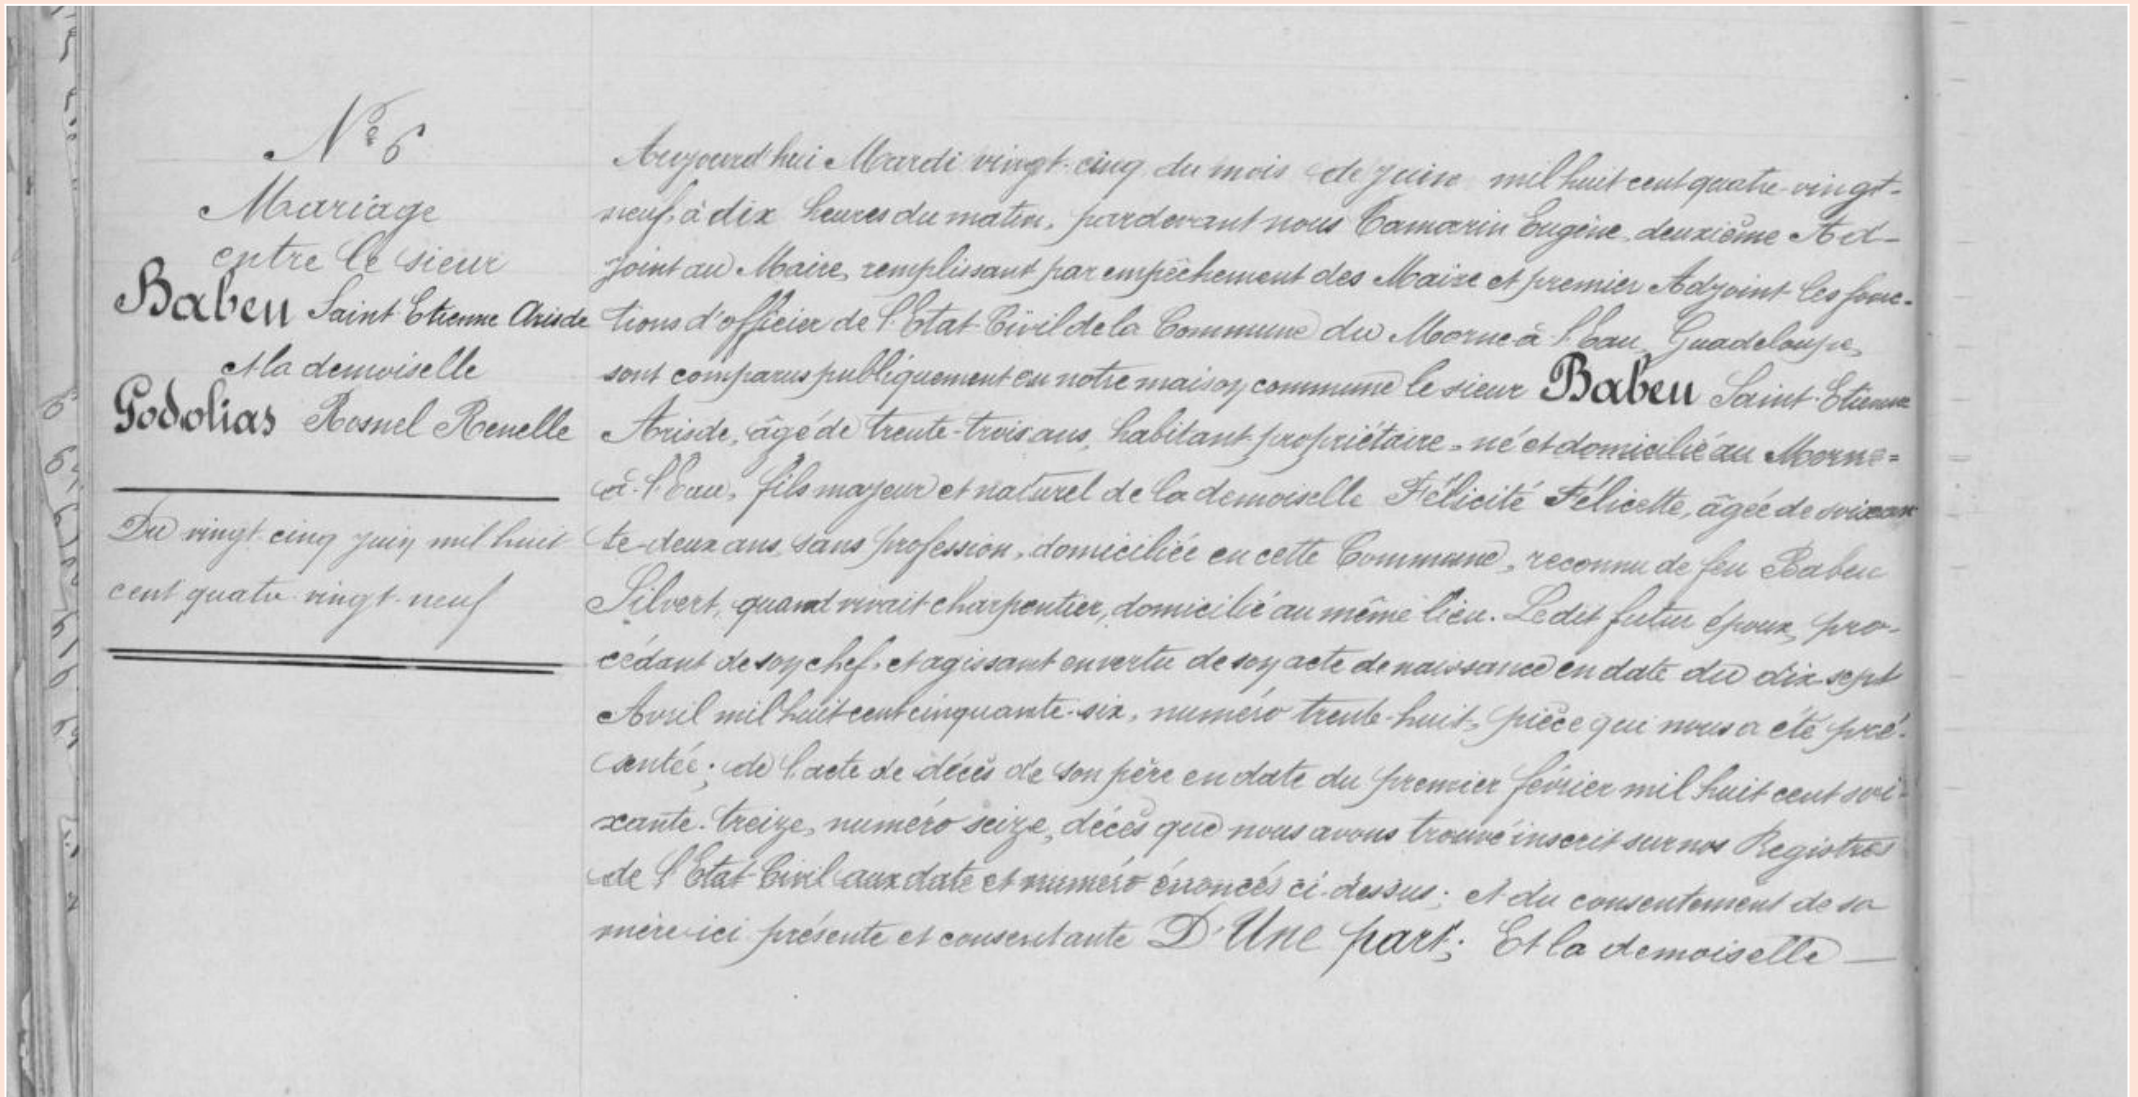 Nº 6
Mariage
entre le sieur
Babeu Saint Etienne Arisde
et la demoiselle
Godolias Rosnel Renelle
Du vingt cinq juin mil huit
cent quatre vingt-neuf
Aujourd'hui Mardi vingt-cinq du mois de juin mil huit cent quatre-vingt-
neuf, à dix heures du matin, pardevant nous Tamarin Eugène, deuxième Ad-
joint au Maire, remplissant par empêchement des Maire et premier Adjoint les fonc-
tions d'officier de l'Etat-Civil de la Commune du Morne-à-l'Eau, Guadeloupe,
sont comparus publiquement en notre maison commune le sieur Babeu Saint-Etienne
Arisde, âgé de trente-trois ans, habitant propriétaire, né et domicilié au Morne-
à-l'Eau, fils majeur et naturel de la demoiselle Félicité Félicette, âgée de soixan
te-deux ans, sans profession, domiciliée en cette Commune, reconnu de feu Babeu
Silvert, quand vivait charpentier, domicilié au même lieu. Ledit futur époux, pro-
cédant de son chef, et agissant en vertu de son acte de naissance en date du dix-sept
Avril mil huit cent cinquante-six, numéro trente-huit, pièce qui nous a été pré-
sentée; de l'acte de décès de son père en date du premier février mil huit cent soi-
xante-treize, numéro seize, décès que nous avons trouvé inscrit sur nos Registres
de l'Etat-Civil aux date et numéro énoncés ci-dessus; et du consentement de sa
mère ici présente et consentante D'Une part; Et la demoiselle —